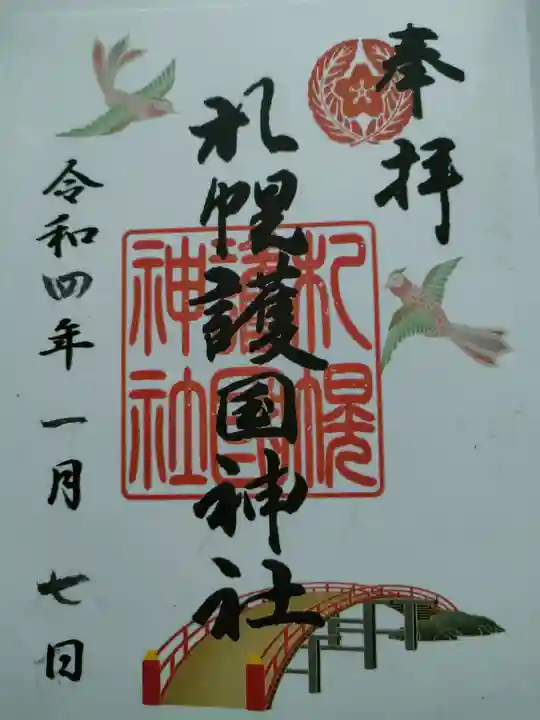 奉拝
札幌護国神社
札幌
護國
神社
令和四年一月七日